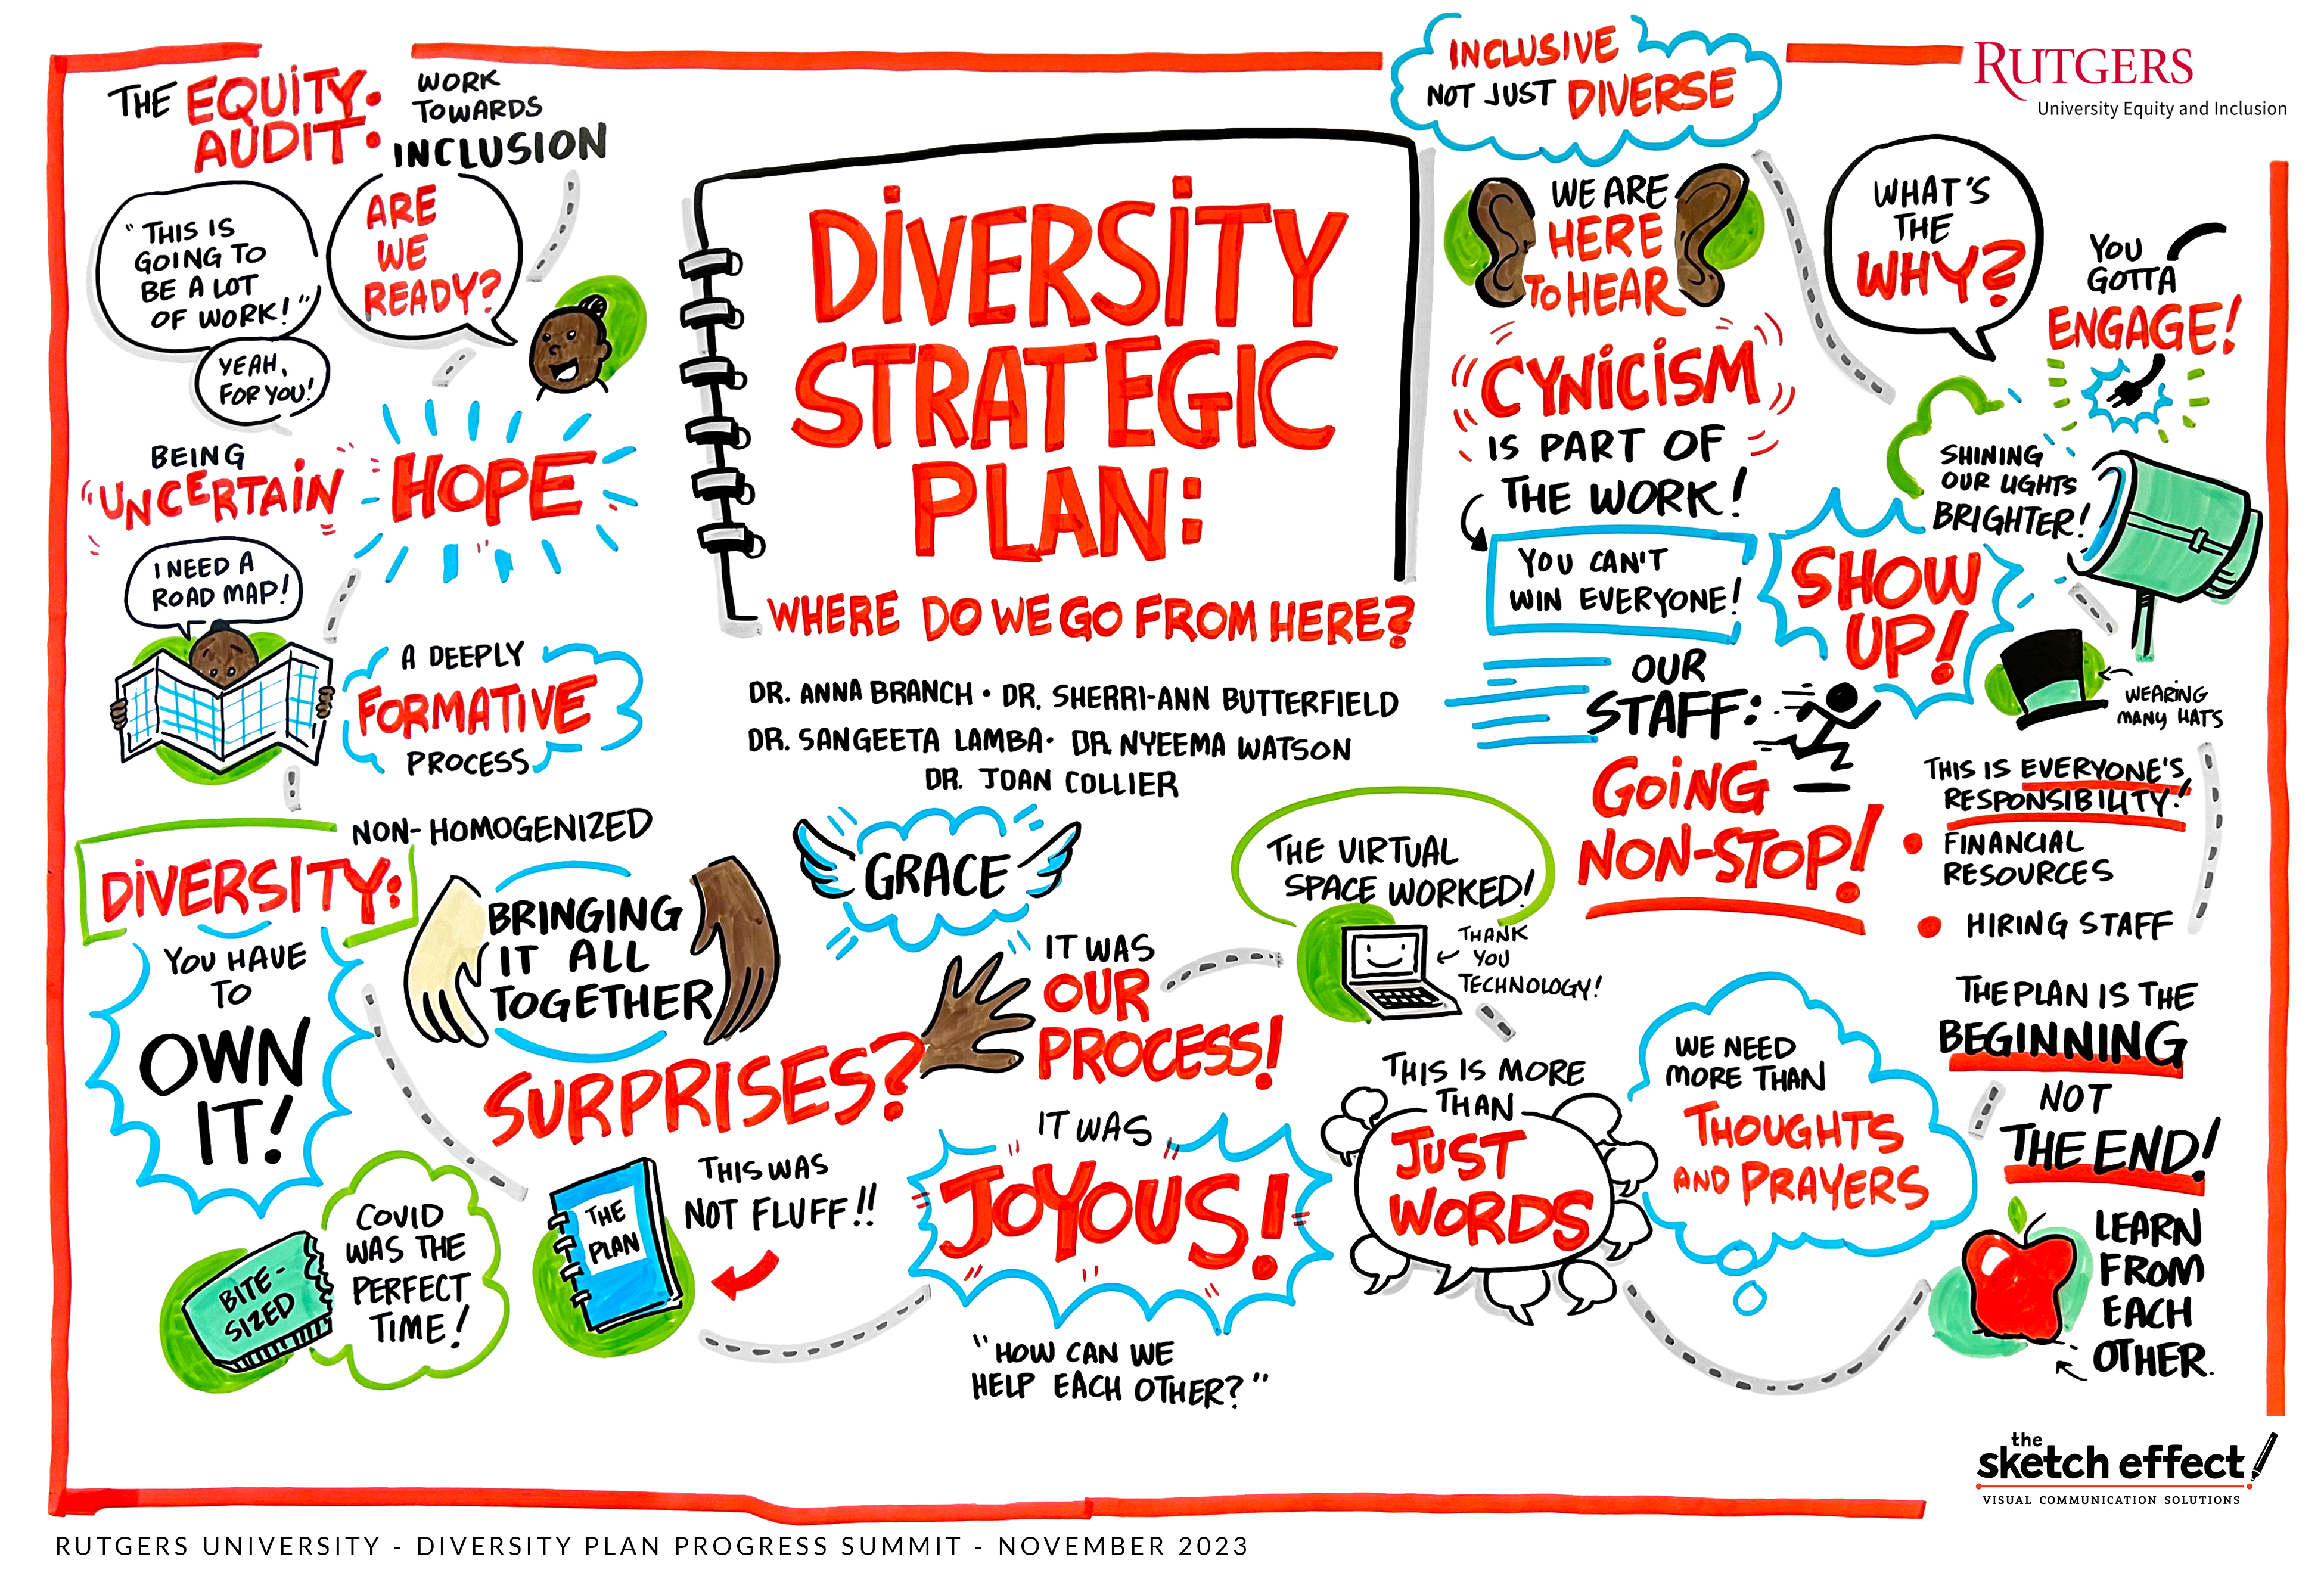 THE EQUITY
AUDIT:
WORK
TOWARDS
INCLUSION
"THIS IS
GOING TO
BE A LOT
OF WORK!"
YEAH,
FOR YOU!
ARE
WE
READY?
BEING
"UNCERTAIN
HOPE
I NEED A
ROAD MAP!
A DEEPLY
FORMATIVE
PROCESS
DIVERSITY
STRATEGIC
PLAN:
WHERE DO WE GO FROM HERE?
DR. ANNA BRANCH • DR. SHERRI-ANN BUTTERFIELD
DR. SANGEETA LAMBA • DR. NYEEMA WATSON
DR. JOAN COLLIER
INCLUSIVE
NOT JUST DIVERSE
RUTGERS
University Equity and Inclusion
WE ARE
HERE
TO HEAR
"CYNICISM"
IS PART OF
THE WORK!
YOU CAN'T
WIN EVERYONE!
WHAT'S
THE
WHY?
YOU
GOTTA
ENGAGE!
SHINING
OUR LIGHTS
BRIGHTER!
SHOW
UP!
WEARING
MANY HATS
OUR
STAFF:
GOING
NON-STOP!
THIS IS EVERYONE'S
RESPONSIBILITY!
• FINANCIAL
RESOURCES
• HIRING STAFF
DIVERSITY:
NON-HOMOGENIZED
YOU HAVE
TO
OWN
IT!
BRINGING
IT ALL
TOGETHER
GRACE
THE VIRTUAL
SPACE WORKED!
THANK
YOU
TECHNOLOGY!
SURPRISES?
IT WAS
OUR
PROCESS!
BITE-
SIZED
COVID
WAS THE
PERFECT
TIME!
THE
PLAN
THIS WAS
NOT FLUFF!!
IT WAS
JOYOUS!
"HOW CAN WE
HELP EACH OTHER?"
THIS IS MORE
THAN
JUST
WORDS
WE NEED
MORE THAN
THOUGHTS
AND PRAYERS
THE PLAN IS THE
BEGINNING
NOT
THE END!
LEARN
FROM
EACH
OTHER.
the
sketch effect
VISUAL COMMUNICATION SOLUTIONS
RUTGERS UNIVERSITY - DIVERSITY PLAN PROGRESS SUMMIT - NOVEMBER 2023